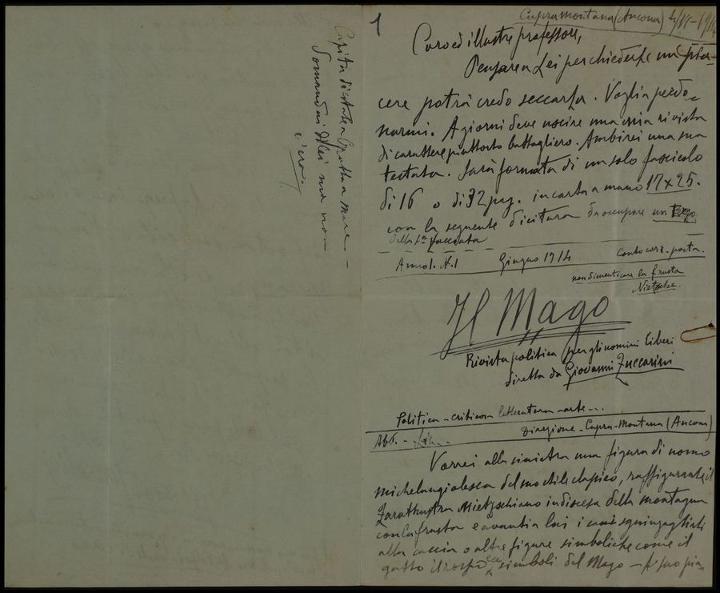 1
Cupramontana (Ancona)
Caro ed illustre professore,
Pensare a Lei per chiederLe un pia-
cere potrà credo seccarLa. Voglia perdo-
narmi. A giorni deve uscire una mia rivista
di carattere piuttosto battagliero. Ambirei una sua
testata. Sarà formata di un solo fascicolo
di 16 o di 32 pag. in carta a mano 17 x 25.
con la seguente dicitura da occupare un terzo
della 1a facciata
Anno I. N. 1 Giugno 1914 Conto corr. posta.
non dimenticare la frusta
Nietzsche.
Il Mago
Rivista politica per gli uomini liberi
diretta da Giovanni Zuccarini
Politica - critica - letteratura - arte...
Abb. - Direzione - Cupra-Montana (Ancona)
Vorrei alla sinistra una figura di uomo
michelangiolesca del modello classico, raffigurante il
Zarathustra Nietzschiano in discesa della montagna
con la frusta e avanti a lui i cani sguinzagliati
alla caccia o altre figure simboliche come il
gatto il rospo ecc. simboli del Mago - A suo pia-
Capita d'estate a Grottammare -
Domandai di lei ma non
c'era,